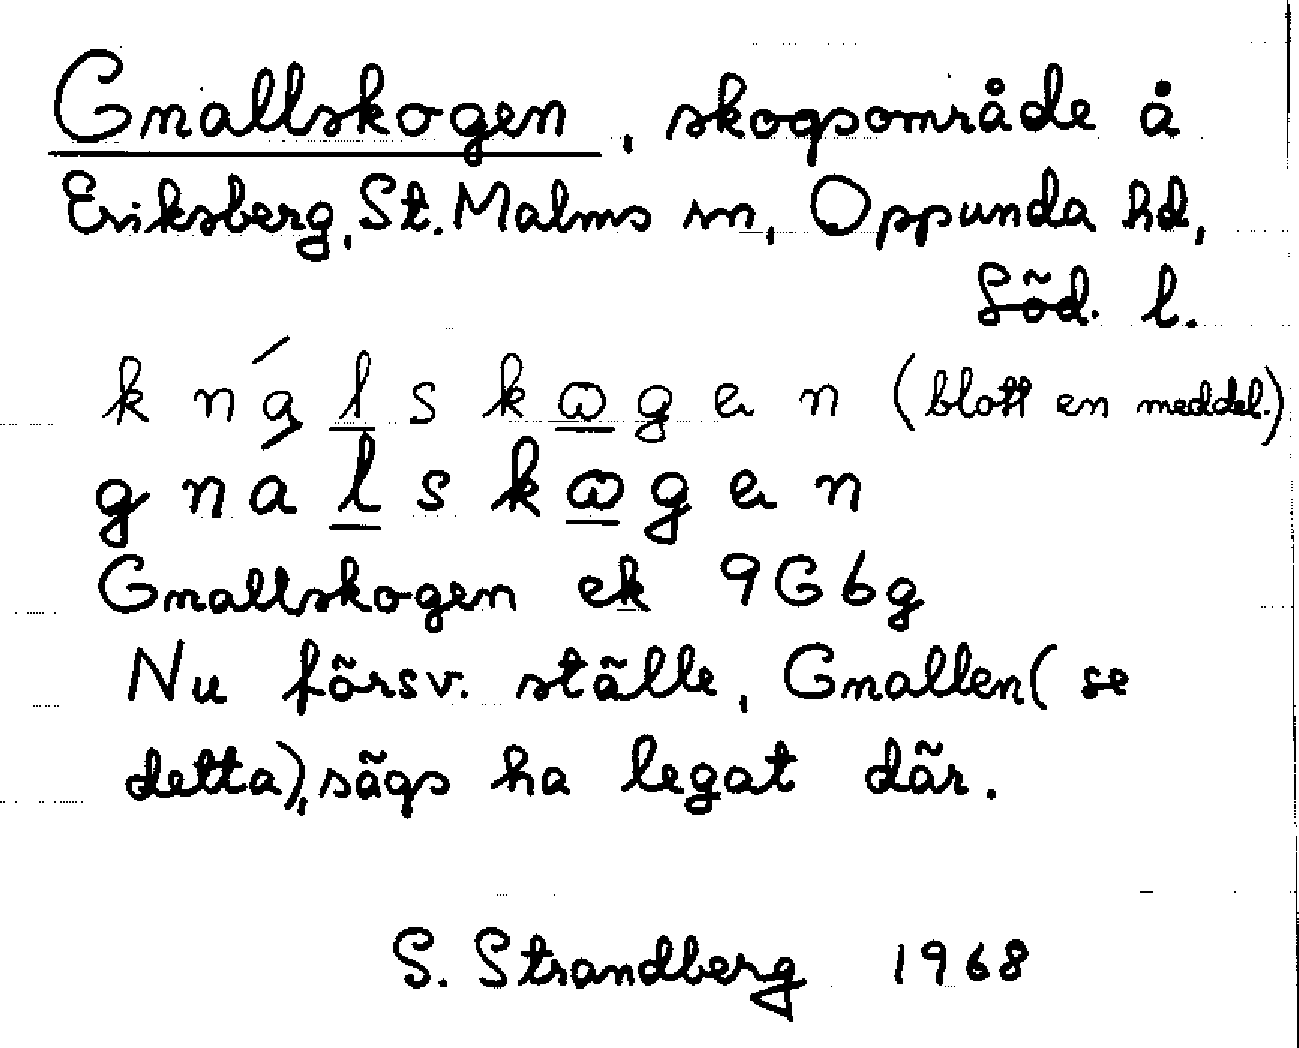 Gnallskogen, skogsområde å
Eriksberg, St. Malms sn, Oppunda hd,
Söd. l.
knálskωgen (blott en meddel.)
gnálskωgen
Gnallskogen ek 9G6g
Nu försv. ställe, Gnallen (se
detta), sägs ha legat där.
S. Strandberg 1968